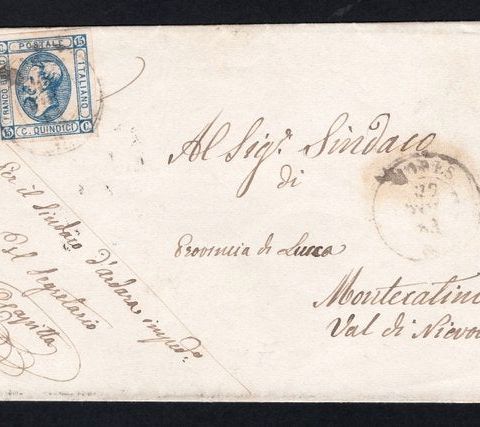 POSTALE
FRANCO BOLLO
ITALIANO
C. QUINDICI
15
15
C.
Al Sig.r Sindaco
di
Provincia di Lucca
Montecatini
Val di Nievo
Per il Sindaco d'Ardara imped.o
Il Segretario